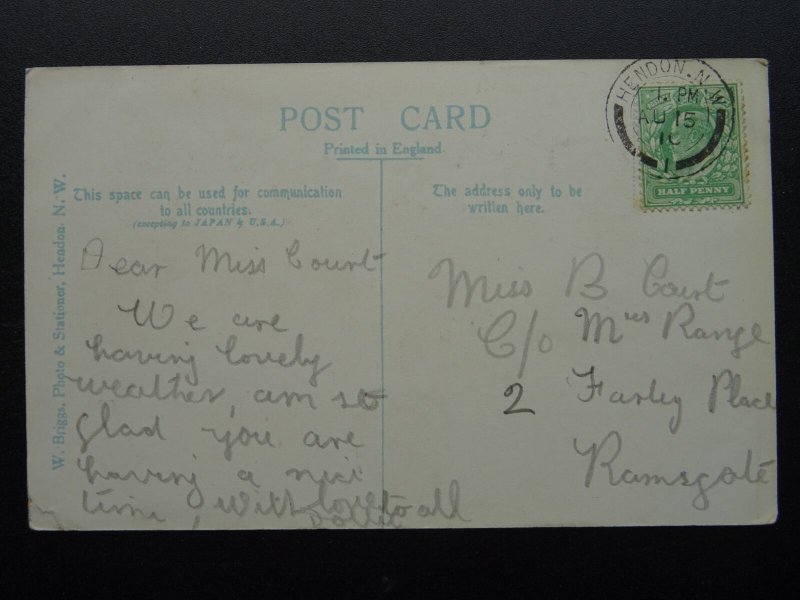 POST CARD
Printed in England.
This space can be used for communication
to all countries.
(excepting to JAPAN & U.S.A.)
The address only to be
written here.
W. Briggs, Photo & Stationer, Hendon. N. W.
HENDON. N.W
1. PM
AU 15
10
1
HALF PENNY
Dear Miss Court
We are
having lovely
weather, am so
glad you are
having a nice
time, With love to all
Dollie
Miss B Court
C/o Mrs Range
2 Farley Place
Ramsgate